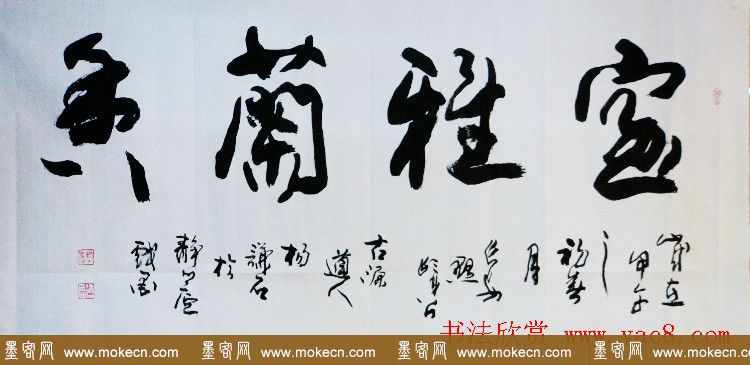 室雅蘭香
歲在
甲午
之
初春
月
古源
道人
楊
謙石
於
靜心廬
戲墨
书法欣赏 www.yac8.com
墨客网 www.mokecn.com 墨客网 www.mokecn.com 墨客网 www.mokecn.com 墨客网 www.mokecn.com